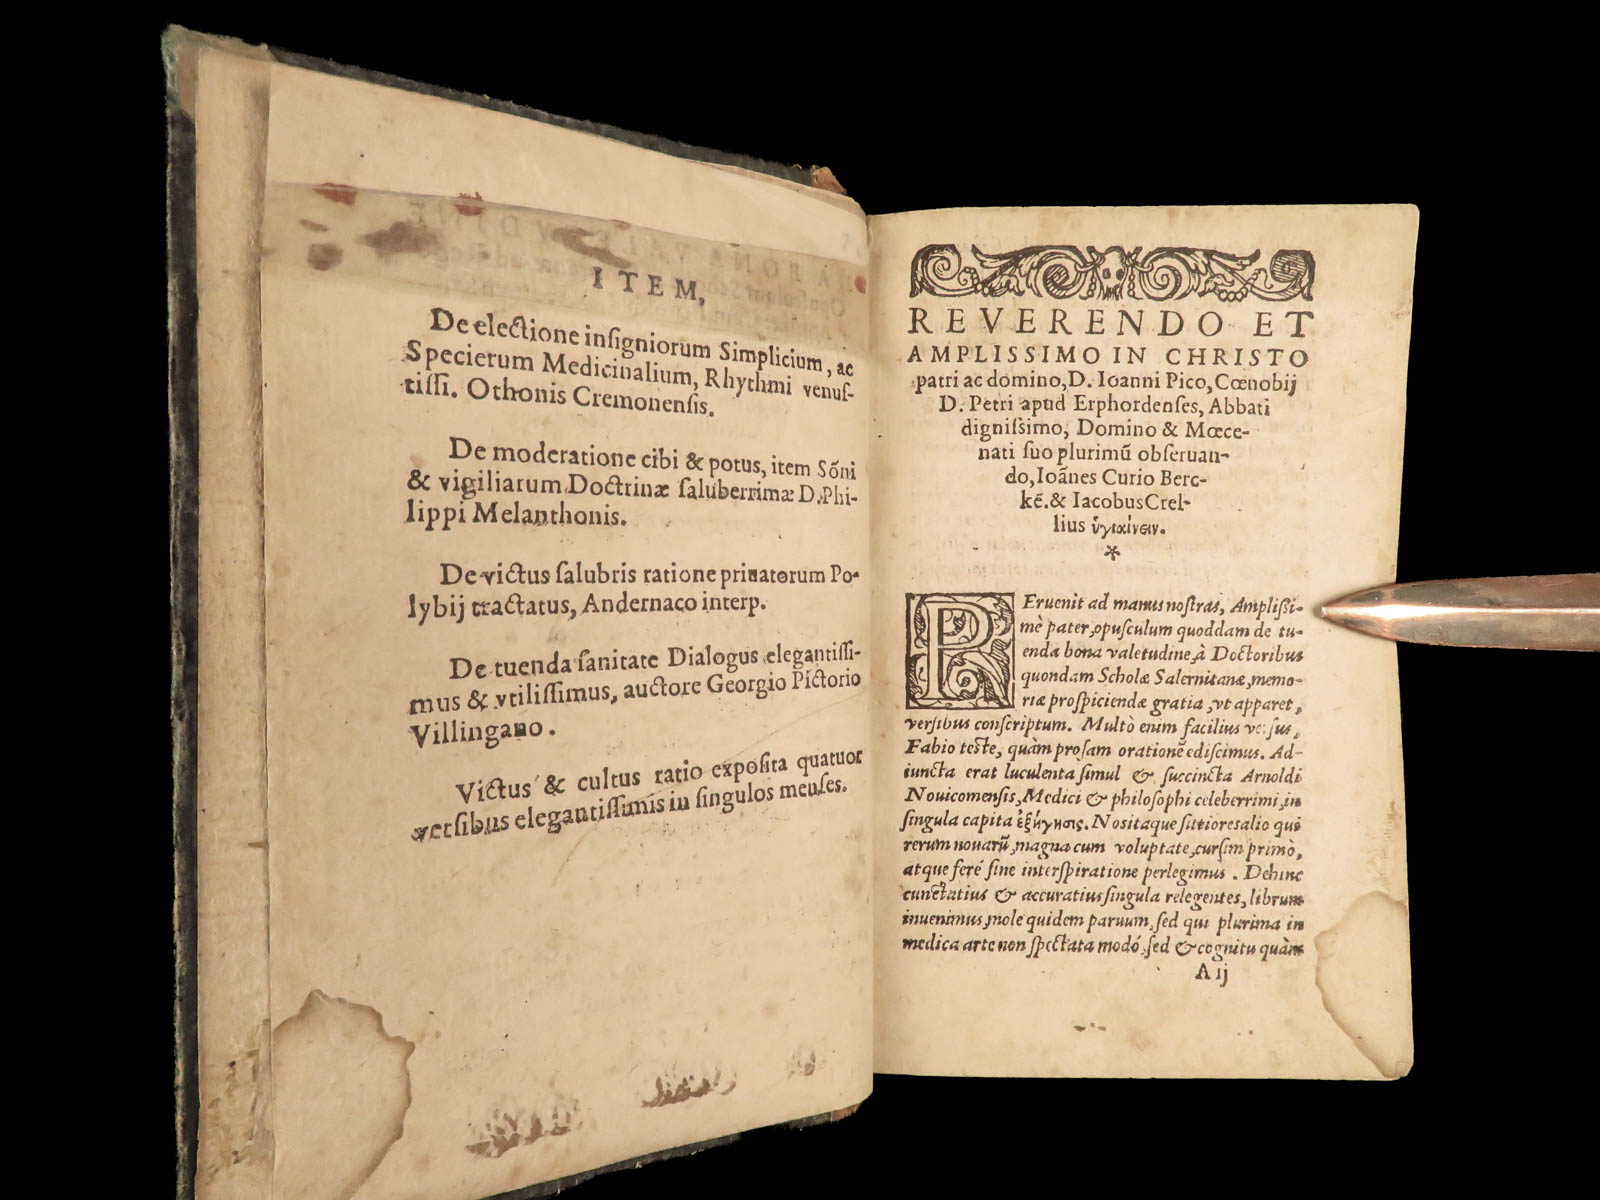 ITEM,
De electione insigniorum Simplicium, ac
Specierum Medicinalium, Rhythmi venus-
tissi. Othonis Cremonensis.
De moderatione cibi & potus, item Sōni
& vigiliarum Doctrinæ saluberrimæ D. Phi-
lippi Melanthonis.
De victus salubris ratione priuatorum Po-
lybij tractatus, Andernaco interp.
De tuenda sanitate Dialogus elegantissi-
mus & vtilissimus, auctore Georgio Pictorio
Villingano.
Victus & cultus ratio exposita quatuor
versibus elegantissimis in singulos menses.
REVERENDO ET
AMPLISSIMO IN CHRISTO
patri ac domino, D. Ioanni Pico, Cœnobij
D. Petri apud Erphordenses, Abbati
dignissimo, Domino & Mœce-
nati suo plurimū obseruan-
do, Ioānes Curio Berc-
kē. & Iacobus Crel-
lius ὑγιαίνειν.
*
PEruenit ad manus nostras, Amplissi-
mè pater, opusculum quoddam de tu-
enda bona valetudine, à Doctoribus
quondam Scholæ Salernitanæ, memo-
riæ prospiciendæ gratia, vt apparet,
versibus conscriptum. Multò enim facilius versus,
Fabio teste, quàm prosam orationē ediscimus. Ad-
iuncta erat luculenta simul & succincta Arnoldi
Nouicomensis, Medici & philosophi celeberrimi, in
singula capita ἐξήγησις. Nos itaque sitiores alio qui
rerum nouarū, magna cum voluptate, cursim primò,
atque ferè sine interspiratione perlegimus. Dehinc
cunctatius & accuratius singula relegentes, librum
inuenimus, mole quidem paruum, sed qui plurima in
medica arte non spectata modó, sed & cognitu quàm
A ij